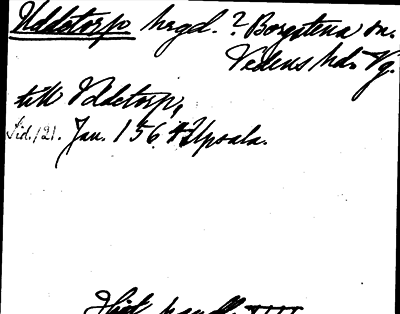 Uddetorp hrgd. ? Borgstena sn.
Vedens hd. Vg.
till Uddetorp,
Sid. 121. Jan. 1564 Upsala.
Hist. handl.